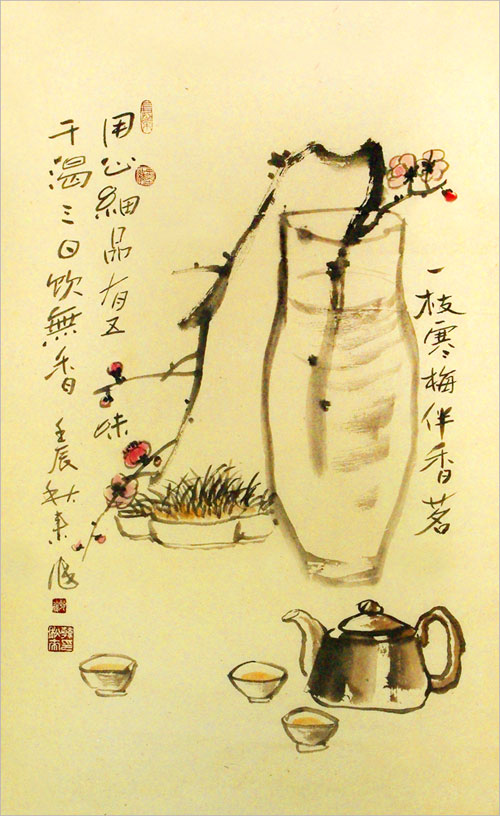 一枝寒梅伴香茗
用心細品有五味
干渴三日饮無香
壬辰秋